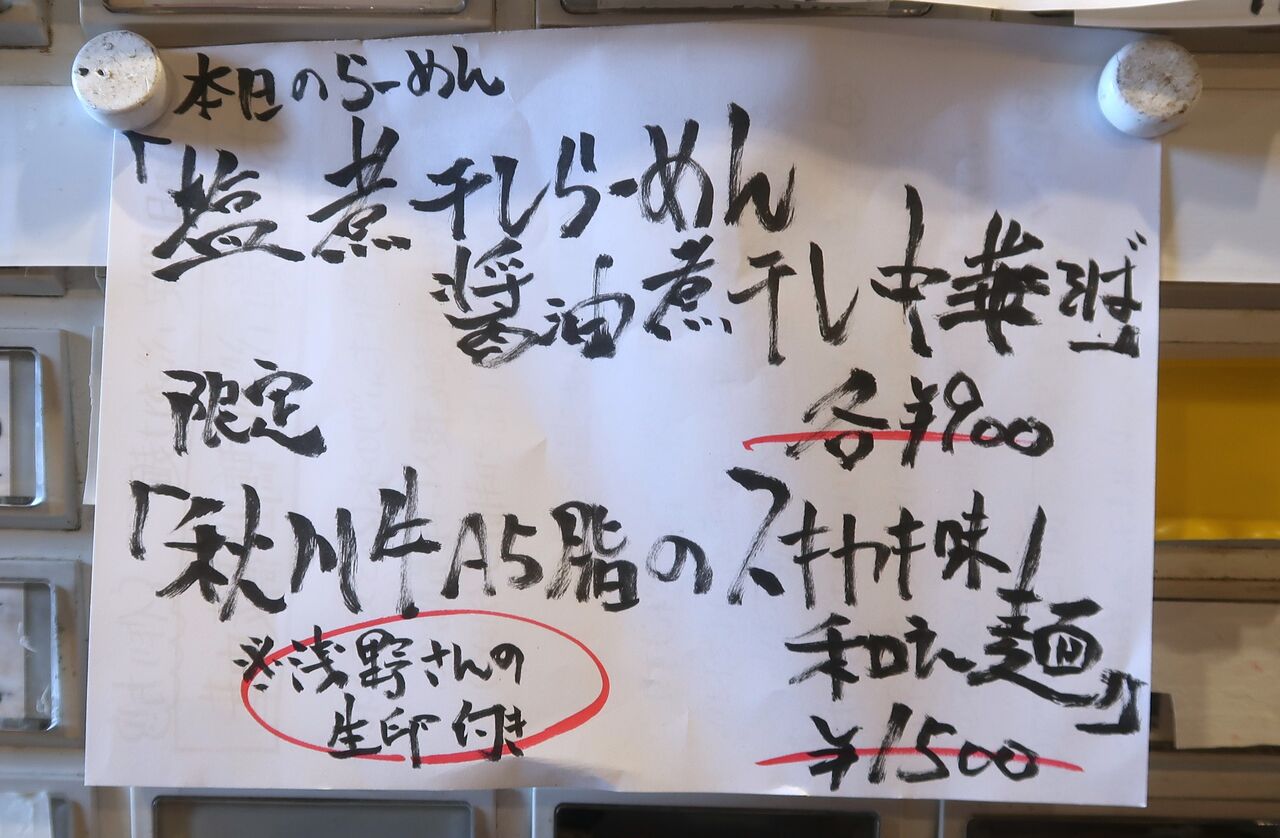 本日のらーめん
「塩煮干しらーめん
醤油煮干し中華そば」
限定
各¥900
「秋川牛A5脂のスキヤキ味!
和え麺」
※浅野さんの
生卵付き
¥1500